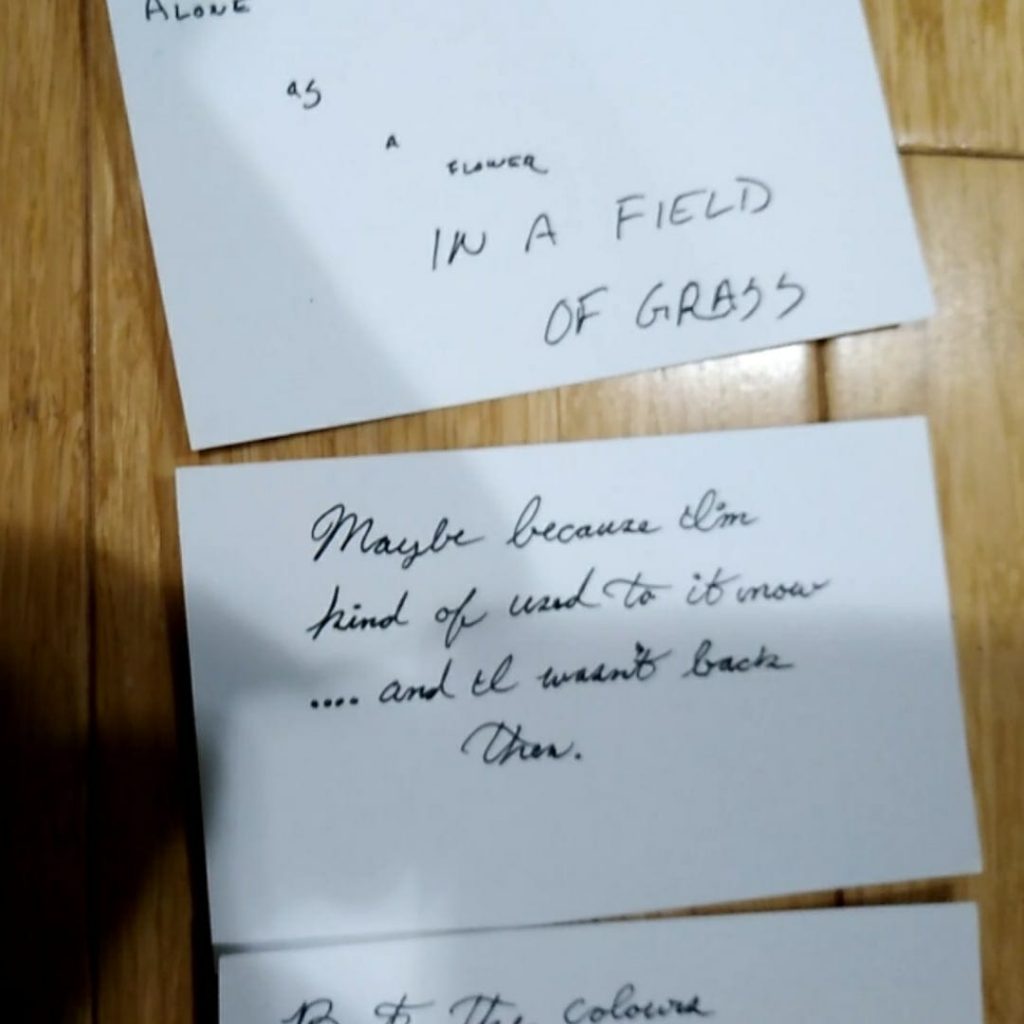 ALONE
as
A
FLOWER
IN A FIELD
OF GRASS
Maybe because I'm
kind of used to it now
.... and I wasn't back
then.
But the colours